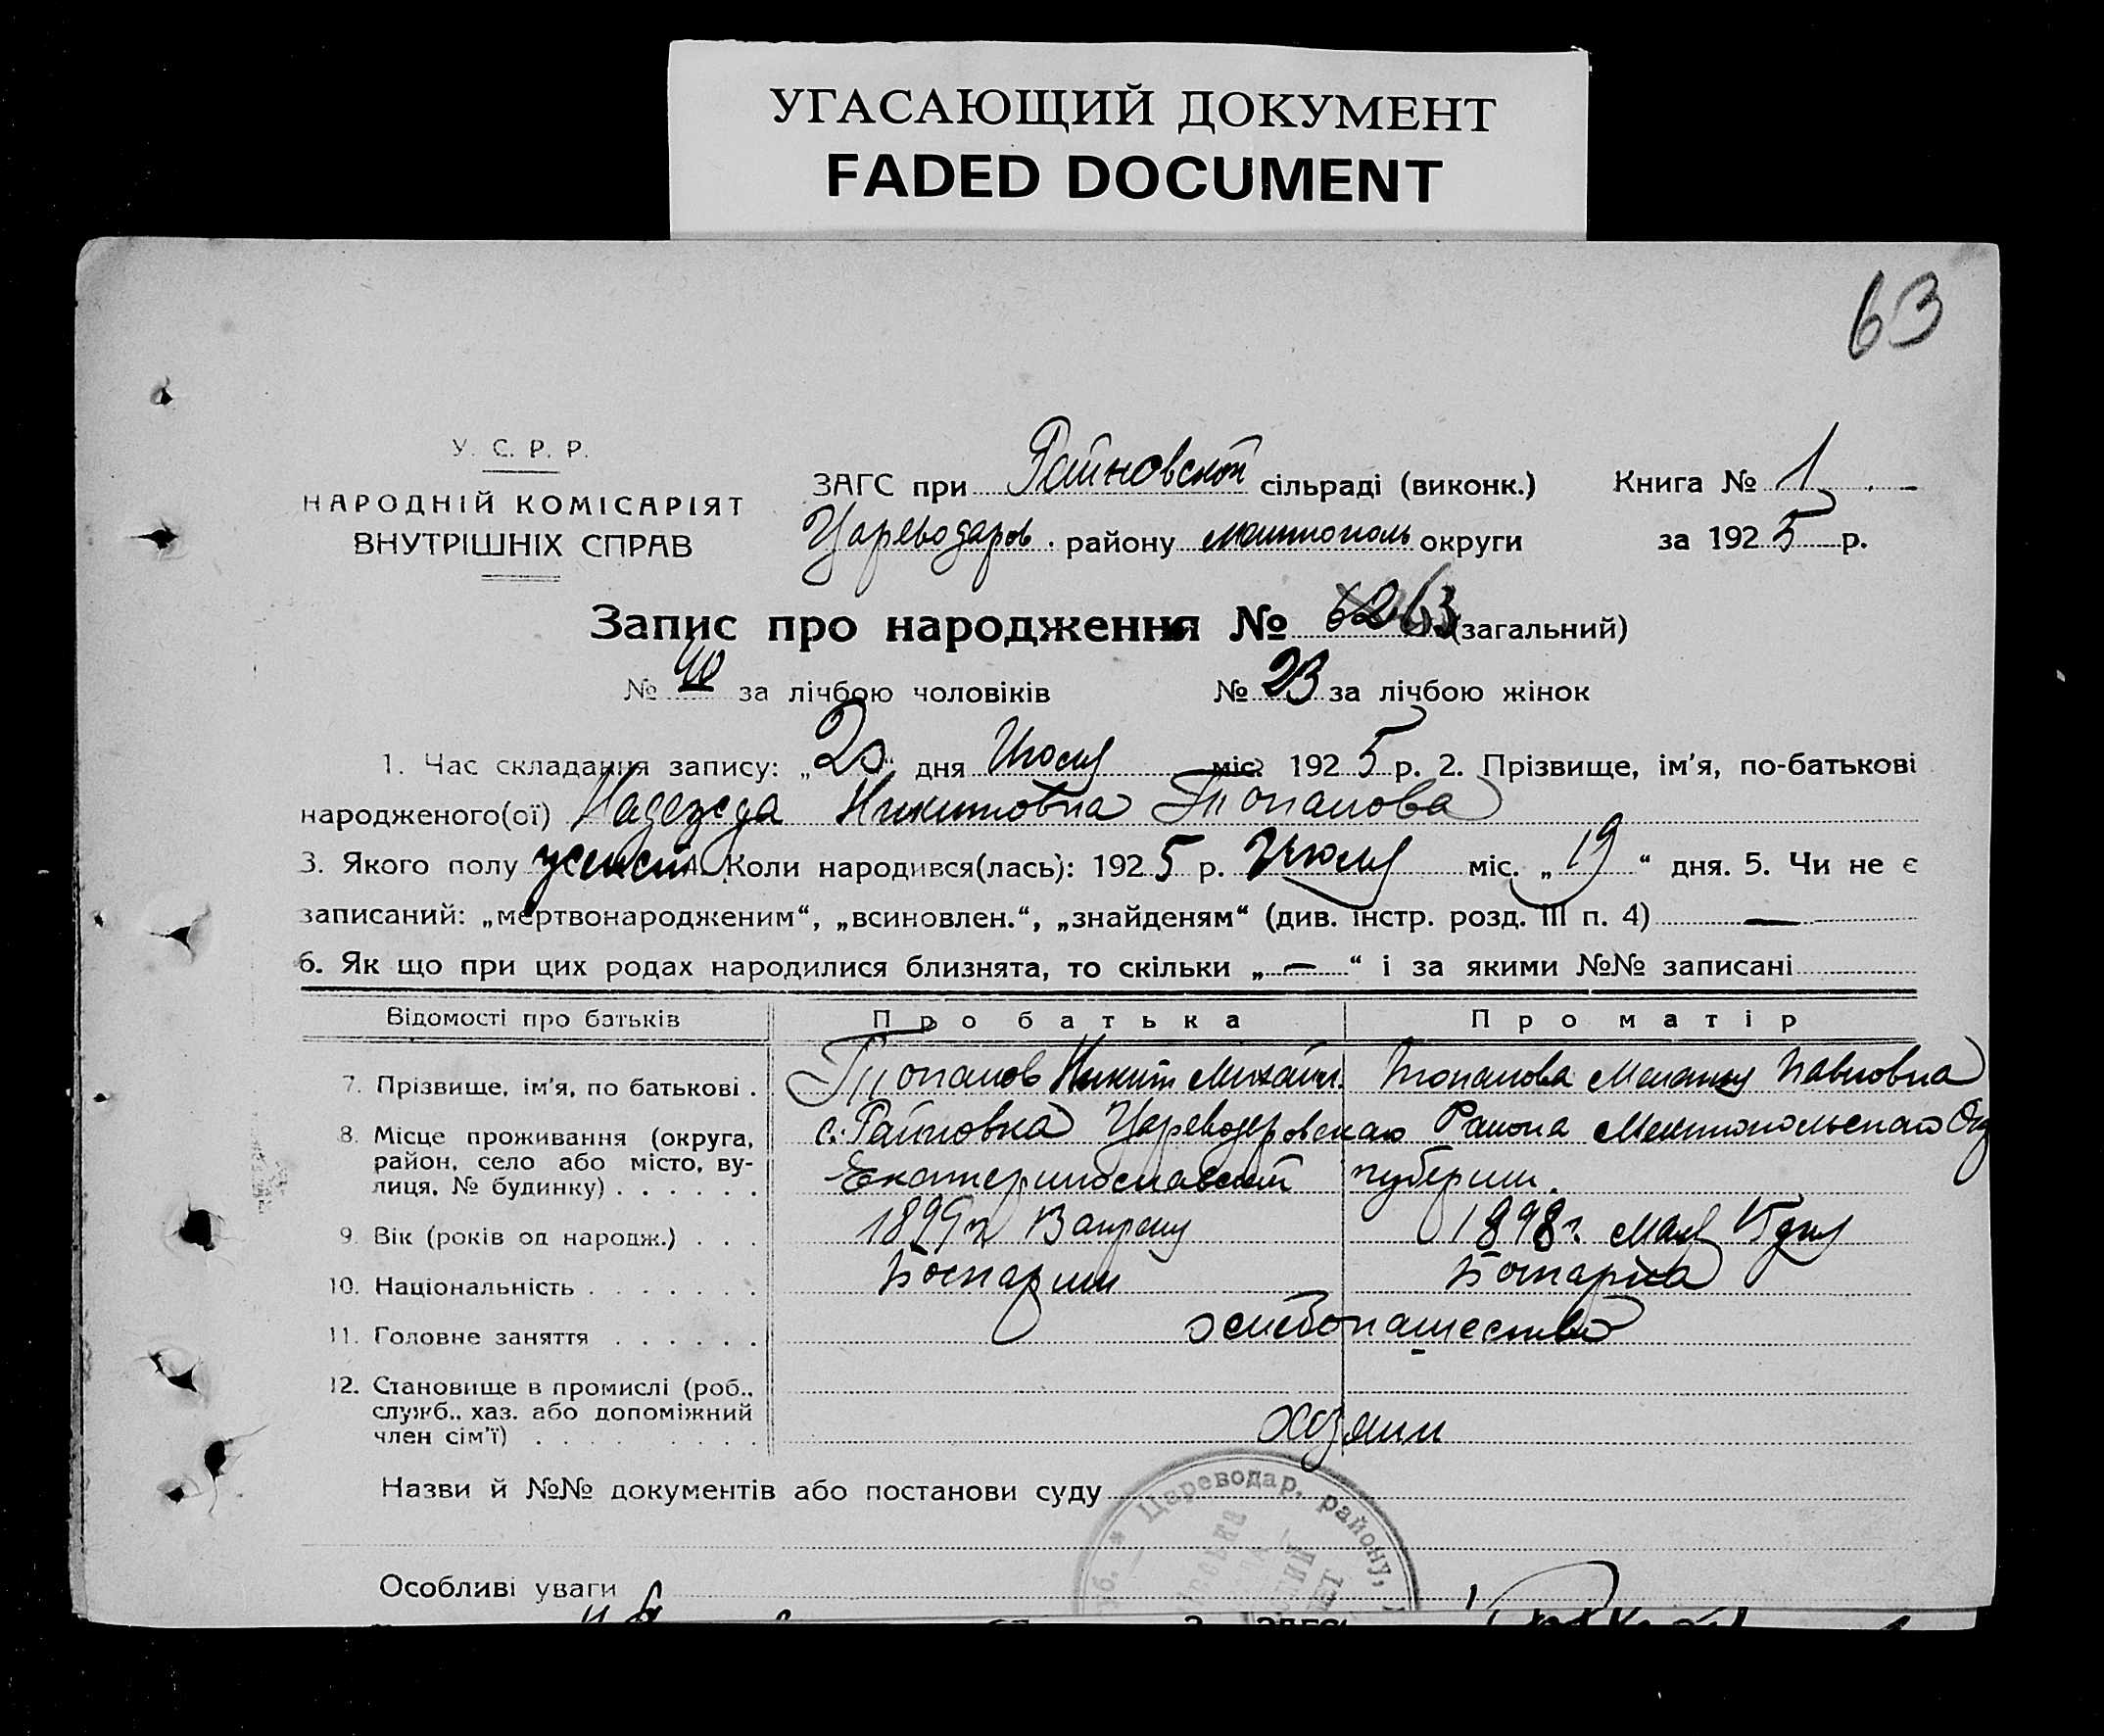 УГАСАЮЩИЙ ДОКУМЕНТ
FADED DOCUMENT
63
У. С. Р. Р.
НАРОДНІЙ КОМІСАРІЯТ
ВНУТРІШНІХ СПРАВ
ЗАГС при Райновской сільраді (виконк.)
Цареводаров. району Мелитополь округи
Книга № 1
за 1925 р.
Запис про народження № 62 63 (загальний)
№ 40 за лічбою чоловіків № 23 за лічбою жінок
1. Час складання запису: „20“ дня Июля міс. 1925 р. 2. Прізвище, ім'я, по-батькові
народженого(ої) Надежда Никитовна Топалова
3. Якого полу женск 4. Коли народився(лась): 1925 р. Июля міс. „19“ дня. 5. Чи не є
записаний: „мертвонародженим“, „всиновлен.“, „знайденям“ (див. інстр. розд. III п. 4) —
6. Як що при цих родах народилися близнята, то скільки „—“ і за якими №№ записані
Відомості про батьків Про батька Про матір
7. Прізвище, ім'я, по батькові . Топалов Никит Михайл. Топалова Меланья Павловна
8. Місце проживання (округа, с. Райновка Цареводаровскаго Района Мелитопольскаго Окр
район, село або місто, ву-
лиця, № будинку) . . . . . . Екатеринославской губернии.
9. Вік (років од народж.) . . . 1899 г. 1898 г. мая
10. Національність . . . . . . . Болгарин Болгарка
11. Головне заняття . . . . . . хлебопашество
12. Становище в промислі (роб.,
служб., хаз. або допоміжний
член сім'ї) . . . . . . . . . хозяин
Назви й №№ документів або постанови суду
* Цареводар. району,
Особливі уваги